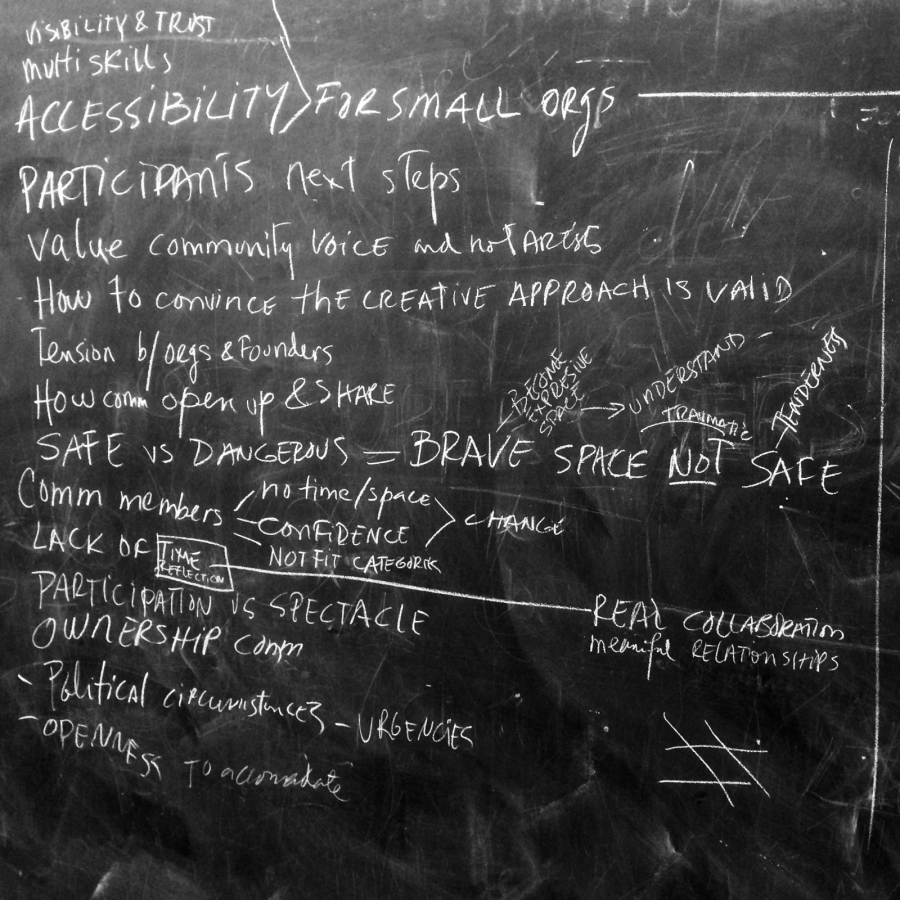 VISIBILITY & TRUST
multi skills
ACCESSIBILITY > FOR SMALL ORGS
PARTICIPANTS next steps
value community VOICE and not ARTISTS
HOW TO CONVINCE the CREATIVE APPROACH IS VALID
Tension b/ orgs & Founders
How comm open up & SHARE
BECOME
EXPRESIVE
SPACE → UNDERSTAND –
TRAUMATIC
TENDERNESS
SAFE vs DANGEROUS = BRAVE SPACE NOT SAFE
Comm members
no time/space
CONFIDENCE
NOT FIT CATEGORIES
CHANGE
LACK OF TIME
REFLECTION
REAL COLLABORATION
PARTICIPATION vs SPECTACLE
OWNERSHIP comm
meaniful RELATIONSHIPS
- Political circumstances – URGENCIES
- OPENNESS TO accomadate